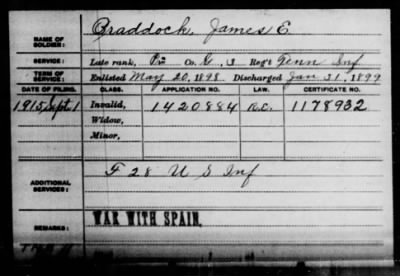 NAME OF SOLDIER: Craddock, James E.
SERVICE: Late rank, Co. G, 3 Reg't Tenn Inf
TERM OF SERVICE: Enlisted May 20, 1898 Discharged Jan 31, 1899
DATE OF FILING. CLASS. APPLICATION NO. LAW. CERTIFICATE NO.
1915, Sept 1 Invalid, 1420884 1178932
Widow,
Minor,
ADDITIONAL SERVICES: F 28 U S Inf
REMARKS: WAR WITH SPAIN.